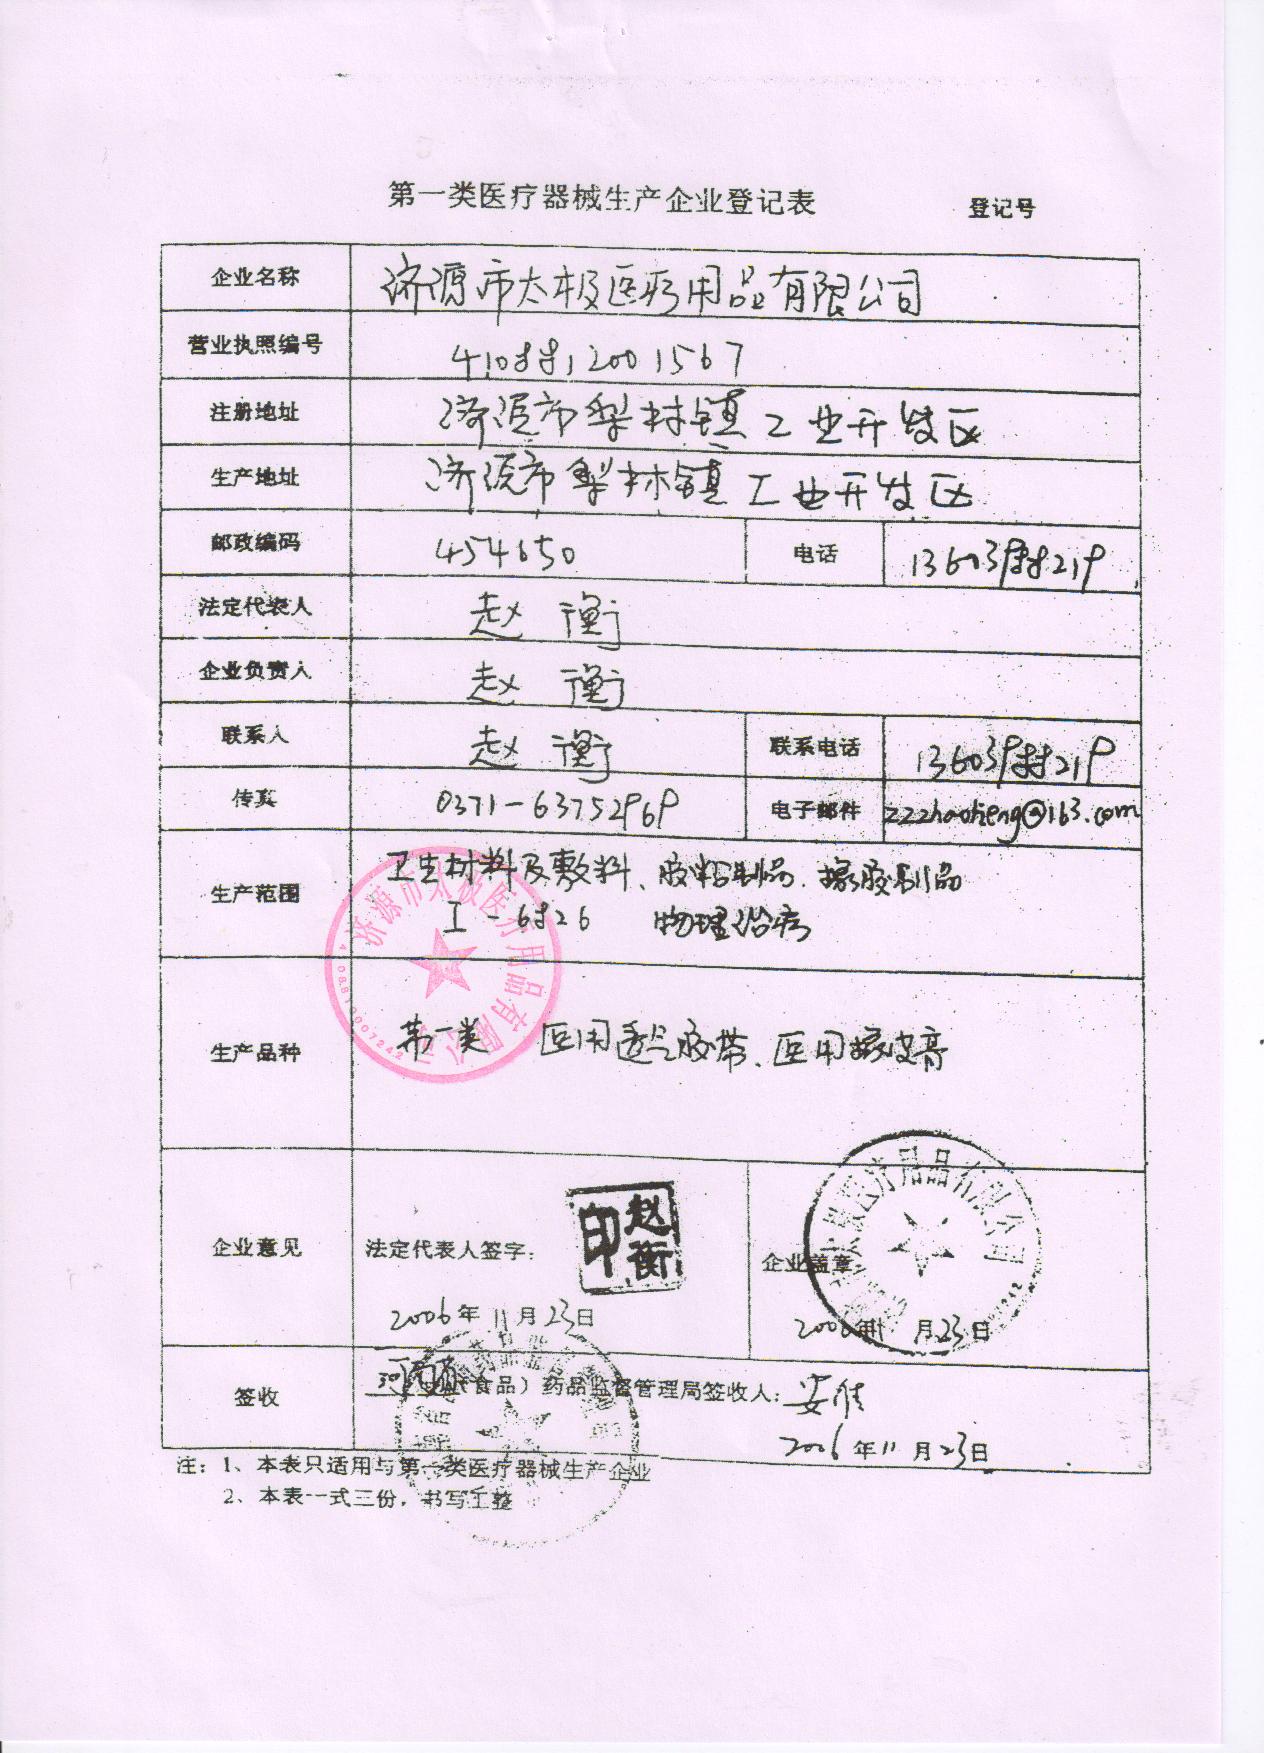 第一类医疗器械生产企业登记表 登记号
企业名称 济源市太极医疗用品有限公司
营业执照编号 4108812001567
注册地址 济源市梨林镇工业开发区
生产地址 济源市梨林镇工业开发区
邮政编码 454650 电话 13603988219
法定代表人 赵衡
企业负责人 赵衡
联系人 赵衡 联系电话 13603988219
传真 0371-63752969 电子邮件 zzzhaoheng@163.com
生产范围 卫生材料及敷料、胶粘制品、橡胶制品
I-6826 物理治疗
济源市太极医疗用品有限公司
4108810007242
生产品种 第一类 医用透气胶带、医用橡皮膏
企业意见 法定代表人签字: 赵衡印 企业盖章
2006年11月23日 2006年11月23日
签收 河南省(食品)药品监督管理局签收人: 安佳
2006年11月23日
注: 1、本表只适用与第一类医疗器械生产企业
2、本表一式三份,书写工整